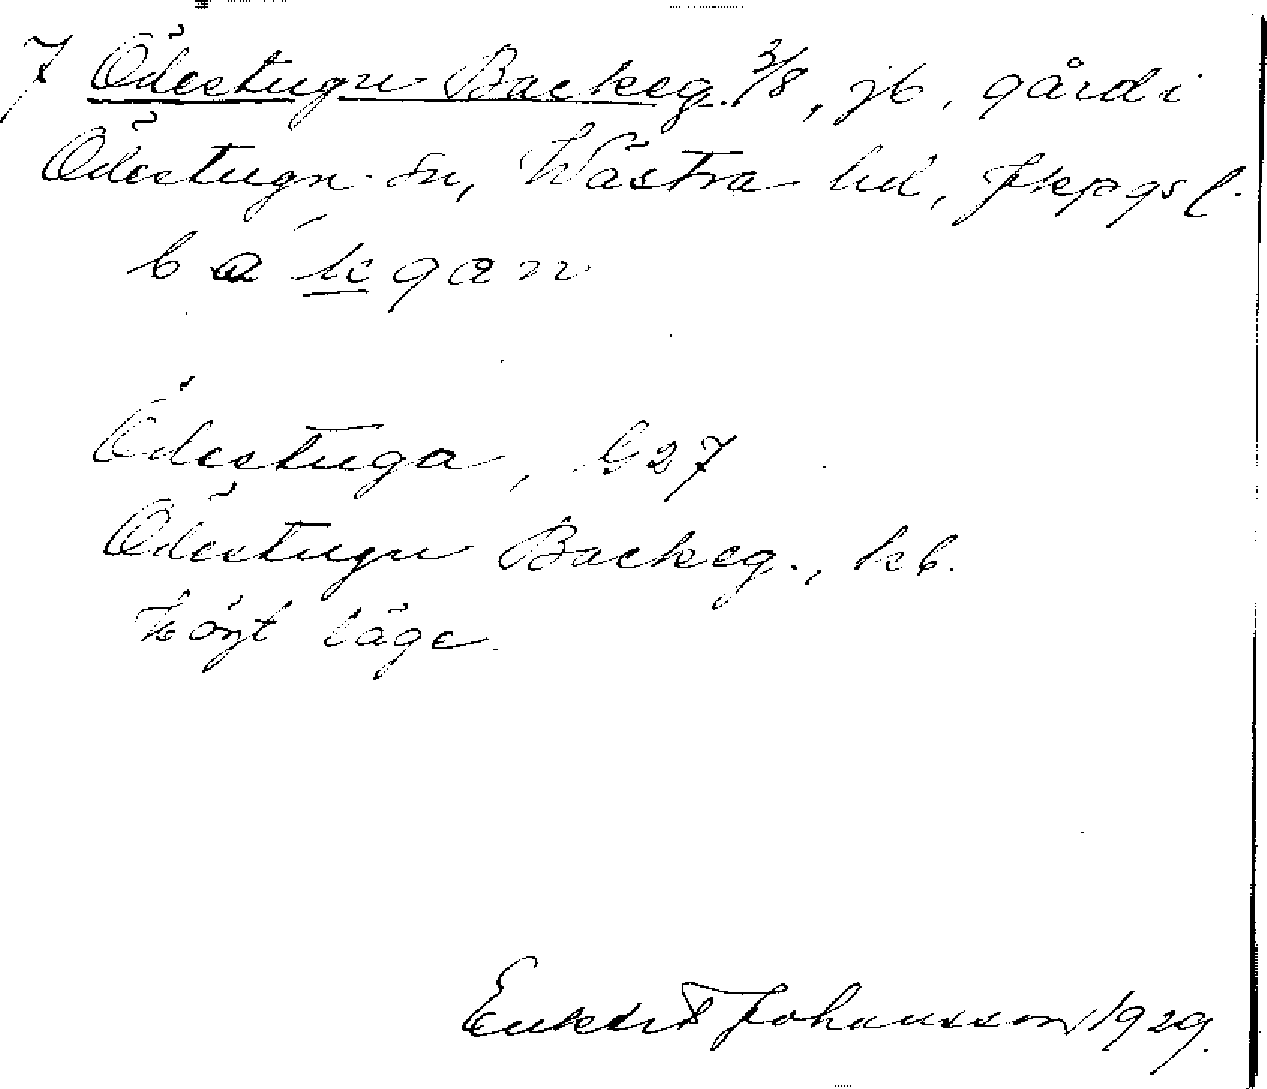 7 Ödestugu Backeg. 3/8, jb. gård i
Ödestugu sn, Västra hd, Jkpgs l.
ba kgan
Ödestuga, G27
Ödestugu Backeg., kb.
Högt läge.
Johansson 1929.